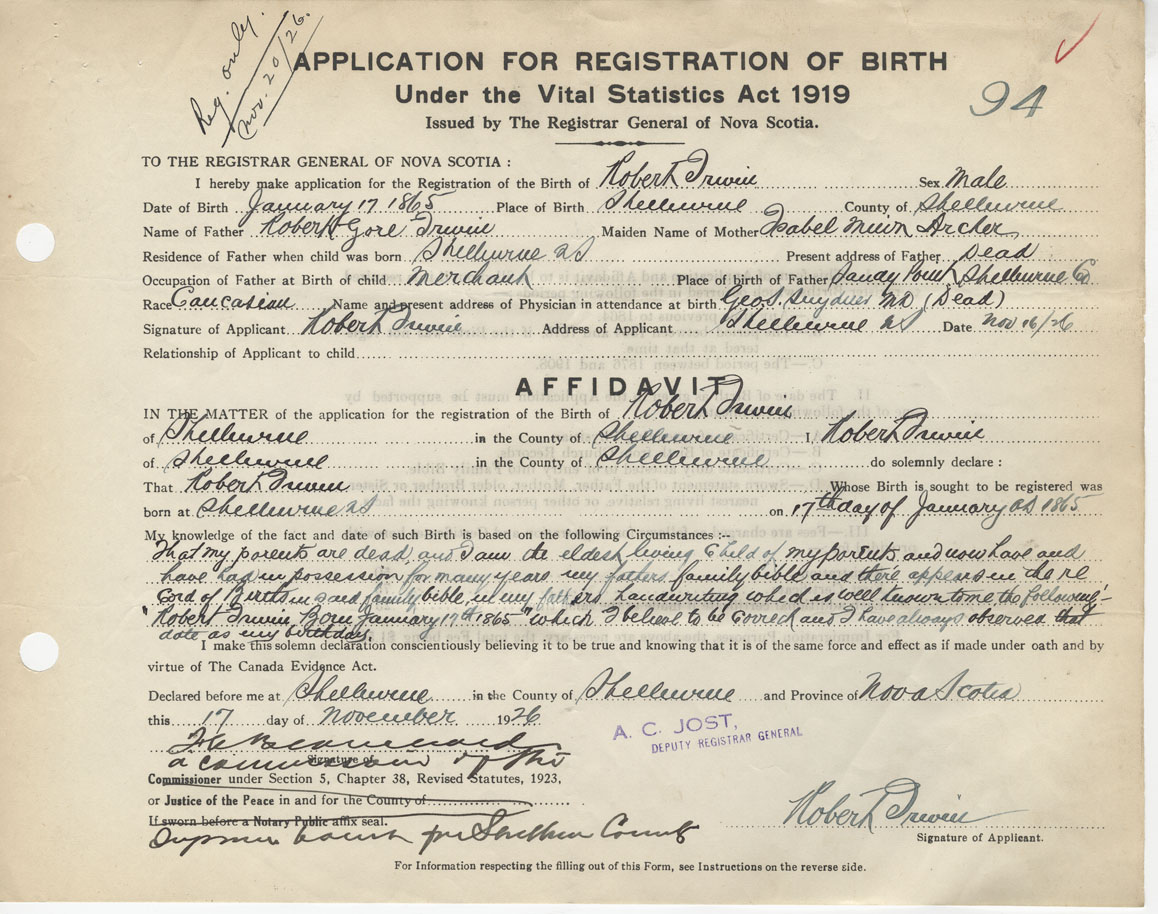 Reg. only.
Nov. 20/26.
94
APPLICATION FOR REGISTRATION OF BIRTH
Under the Vital Statistics Act 1919
Issued by The Registrar General of Nova Scotia.
TO THE REGISTRAR GENERAL OF NOVA SCOTIA :
I hereby make application for the Registration of the Birth of Robert Irwin Sex Male
Date of Birth January 17 1865 Place of Birth Shelburne County of Shelburne
Name of Father Robert Gore Irwin Maiden Name of Mother Isabel Muir Archer
Residence of Father when child was born Shelburne NS Present address of Father Dead
Occupation of Father at Birth of child Merchant Place of birth of Father Sandy Point, Shelburne Co
Race Caucasian Name and present address of Physician in attendance at birth Geo. Snyder MD (Dead)
Signature of Applicant Robert Irwin Address of Applicant Shelburne NS Date Nov 16/26
Relationship of Applicant to child
AFFIDAVIT
IN THE MATTER of the application for the registration of the Birth of Robert Irwin
of Shelburne in the County of Shelburne I, Robert Irwin
of Shelburne in the County of Shelburne do solemnly declare :
That Robert Irwin Whose Birth is sought to be registered was
born at Shelburne NS on 17th day of January AD 1865
My knowledge of the fact and date of such Birth is based on the following Circumstances :--
That my parents are dead and I am the eldest living Child of my parents and now have and
have had in possession for many years my fathers family bible and there appears in the re
cord of Births in said family bible, in my fathers handwriting which is well known to me the following:-
"Robert Irwin, Born January 17th 1865" which I believe to be correct and I have always observed that
date as my birthday.
I make this solemn declaration conscientiously believing it to be true and knowing that it is of the same force and effect as if made under oath and by
virtue of The Canada Evidence Act.
Declared before me at Shelburne in the County of Shelburne and Province of Nova Scotia
this 17 day of November 1926
A. C. JOST,
DEPUTY REGISTRAR GENERAL
a commissioner of the
Signature of
Commissioner under Section 5, Chapter 38, Revised Statutes, 1923,
or Justice of the Peace in and for the County of
If sworn before a Notary Public affix seal.
Supreme Court for Shelburne County
Robert Irwin
Signature of Applicant.
For Information respecting the filling out of this Form, see Instructions on the reverse side.